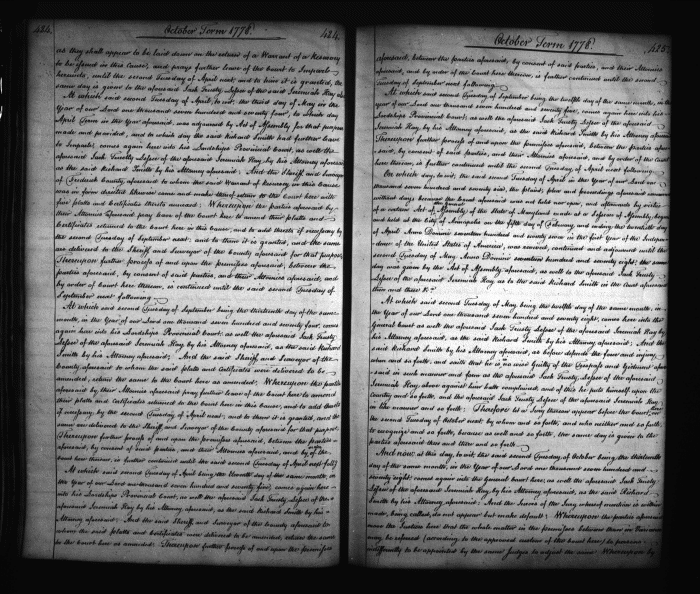 484.
October Term 1778.
484.
as they shall appear to be laid down on the return of a Warrant of a Resurvey
to be issued in this Cause, and prays further leave of the Court to Imparle
hereunto, until the second Tuesday of April next; and to him it is granted, the
same day is given to the aforesaid Jack Trusty, Lessee of the said Jeremiah Ray also
At which said second Tuesday of April, to wit; the third day of May in the
Year of our Lord one thousand seven hundred and seventy four, to which day
April Term in the Year aforesaid, was adjourned by Act of Assembly for that purpose
made and provided, and to which day the said Richard Smith had further leave
to Imparle; comes again here into his Lordships Provincial Court, as well the
aforesaid Jack Trusty Lessee of the aforesaid Jeremiah Ray by his Attorney aforesaid
as the said Richard Smith by his Attorney aforesaid: And the Sheriff and Surveyor
of Frederick County aforesaid to whom the said Warrant of Resurvey in this Cause
was in form directed likewise come and make thereof return to the Court here with
five platts and Certificates thereto annexed: Whereupon the parties aforesaid by
their Attornies aforesaid pray leave of the Court here to amend their platts and
Certificates returned to the Court here in this Cause, and to add thereto if necessary by
the second Tuesday of September next; and to them it is granted, and the same
are delivered to the Sheriff and Surveyor of the County aforesaid for that purpose
Thereupon further process of and upon the premisses aforesaid, between the
parties aforesaid, by consent of said parties, and their Attornies aforesaid, and
by order of Court here thereon, is continued until the said second Tuesday of
September next following
At which said second Tuesday of September being the thirteenth day of the same
month, in the Year of our Lord one thousand seven hundred and seventy four, comes
again here into his Lordships Provincial Court; as well the aforesaid Jack Trusty
Lessee of the aforesaid Jeremiah Ray by his Attorney aforesaid, as the said Richard
Smith by his Attorney aforesaid; And the said Sheriff, and Surveyor of the
County aforesaid to whom the said platts and Certificates were delivered to be
amended, return the same to the Court here as amended; Whereupon the parties
aforesaid by their Attornies aforesaid pray further leave of the Court here to amend
their platts and Certificates returned to the Court here in this Cause, and to add thereto
if necessary by the second Tuesday of April next; and to them it is granted, and the
same are delivered to the Sheriff and Surveyor of the County aforesaid for that purpose
Thereupon further process of and upon the premisses aforesaid, between the parties
aforesaid, by consent of said parties, and their Attornies aforesaid, and by order of the
Court here thereon, is further continued until the said second Tuesday of April next foll.g
At which said second Tuesday of April being the Eleventh day of the same month, in
the Year of our Lord one thousand seven hundred and seventy five, comes again here
into his Lordships Provincial Court, as well the aforesaid Jack Trusty Lessee of the
aforesaid Jeremiah Ray by his Attorney aforesaid, as the said Richard Smith by his
Attorney aforesaid: And the said Sheriff, and Surveyor of the County aforesaid to
whom the said platts and Certificates were delivered to be amended, return the same
to the Court here as amended: Thereupon further process of and upon the premisses
October Term 1778.
485.
aforesaid, between the parties aforesaid, by consent of said parties, and their Attornies
aforesaid, and by order of the Court here thereon, is further continued until the second
Tuesday of September next following
At which said second Tuesday of September being the twelfth day of the same month, in the
Year of our Lord one thousand seven hundred and seventy five, comes again here into his
Lordships Provincial Court; as well the aforesaid Jack Trusty Lessee of the aforesaid
Jeremiah Ray by his Attorney aforesaid, as the said Richard Smith by his Attorney aforesaid
Thereupon further process of and upon the premisses aforesaid, between the parties afore
said, by consent of said parties, and their Attornies aforesaid, and by order of the Court
here thereon, is further continued until the second Tuesday of April next following
On which day, to wit; the said second Tuesday of April in the Year of our Lord one
thousand seven hundred and seventy six, the plaint, plea and proceedings aforesaid remained
without day, because the Court aforesaid was not held nor open, and afterwards by virtue
of a certain Act of the General Assembly of the State of Maryland made at a Session of Assembly begun
and held at the City of Annapolis on the fifth day of February, and ending the twentieth day
of April Anno Domini seventeen hundred and seventy seven in the first Year of the Indepen
dence of the United States of America, was revived, continued and adjourned until the
second Tuesday of May Anno Domini seventeen hundred and seventy eight; the same
day was given by the Act of Assembly aforesaid, as well to the aforesaid Jack Trusty
Lessee of the aforesaid Jeremiah Ray, as to the said Richard Smith in the Court aforesaid
then and there &c.
At which said second Tuesday of May being the twelfth day of the same month, in
the Year of our Lord one thousand seven hundred and seventy eight, comes here into the
General Court as well the aforesaid Jack Trusty, Lessee of the aforesaid Jeremiah Ray by
his Attorney aforesaid, as the said Richard Smith by his Attorney aforesaid: And the
said Richard Smith by his Attorney aforesaid, as before defends the force and injury,
when and so forth, and saith that he is not Guilty of the Trespass and Ejectment afore
said in such manner and form as the aforesaid Jack Trusty Lessee of the aforesaid
Jeremiah Ray, above against him hath complained; and of this he puts himself upon the
Country and so forth, and the aforesaid Jack Trusty Lessee of the aforesaid Jeremiah Ray,
in like manner and so forth: Therefore let a Jury thereon appear before the Court here
the second Tuesday of October next, by whom and so forth, and who neither and so forth
to recognize and so forth, because as well and so forth, the same day is given to the
parties aforesaid then and there and so forth.
And now at this day, to wit, the said second Tuesday of October being the thirteenth
day of the same month, in the Year of our Lord one thousand seven hundred and
seventy eight; comes again into the General Court here, as well the aforesaid Jack Trusty
Lessee of the aforesaid Jeremiah Ray, by his Attorney aforesaid, as the said Richard
Smith by his Attorney aforesaid; And the Jurors of the Jury whereof mention is within
made, being called, do appear but make default: Whereupon the parties aforesaid
move the Justices here that the whole matter in the premisses between them in Variance
may be referred (according to the approved custom of the Court here) to persons in
differently to be appointed by the same Judges to adjust the same: Whereupon by